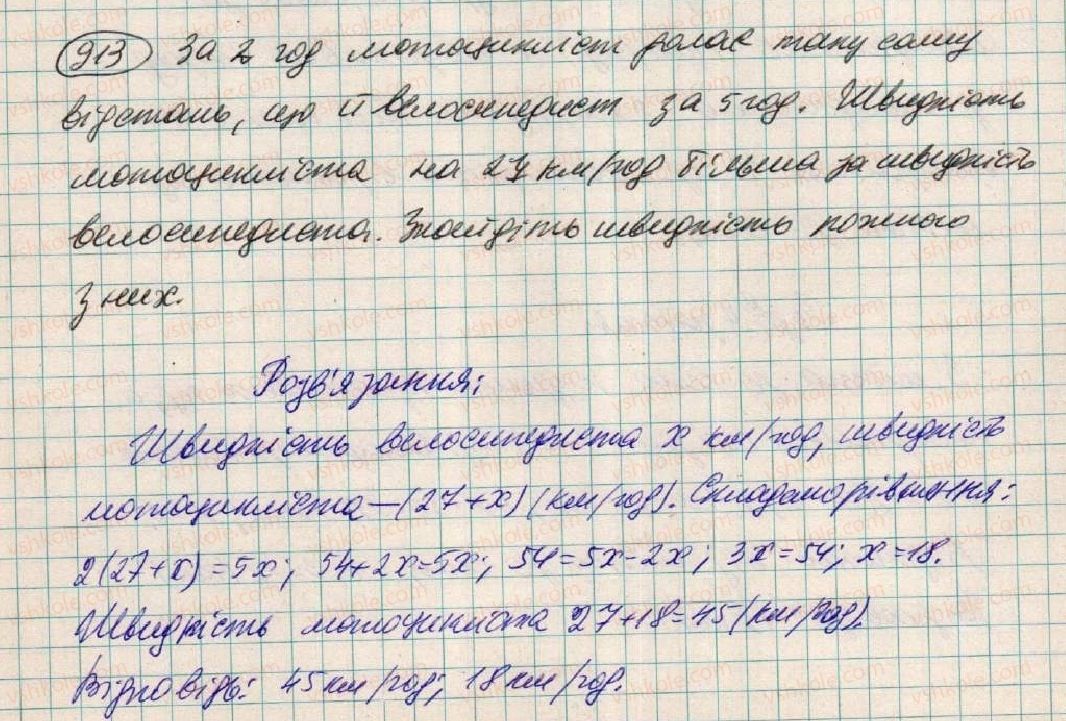 913 За 2 год мотоцикліст долає таку саму
відстань, що й велосипедист за 5 год. Швидкість
мотоцикліста на 27 км/год більша за швидкість
велосипедиста. Знайдіть швидкість кожного
з них.
Розв'язання:
Швидкість велосипедиста x км/год, швидкість
мотоцикліста — (27+x) (км/год). Складемо рівняння:
2(27+x) = 5x; 54+2x=5x; 54=5x-2x; 3x=54; x=18.
Швидкість мотоцикліста 27+18=45 (км/год).
Відповідь: 45 км/год; 18 км/год.